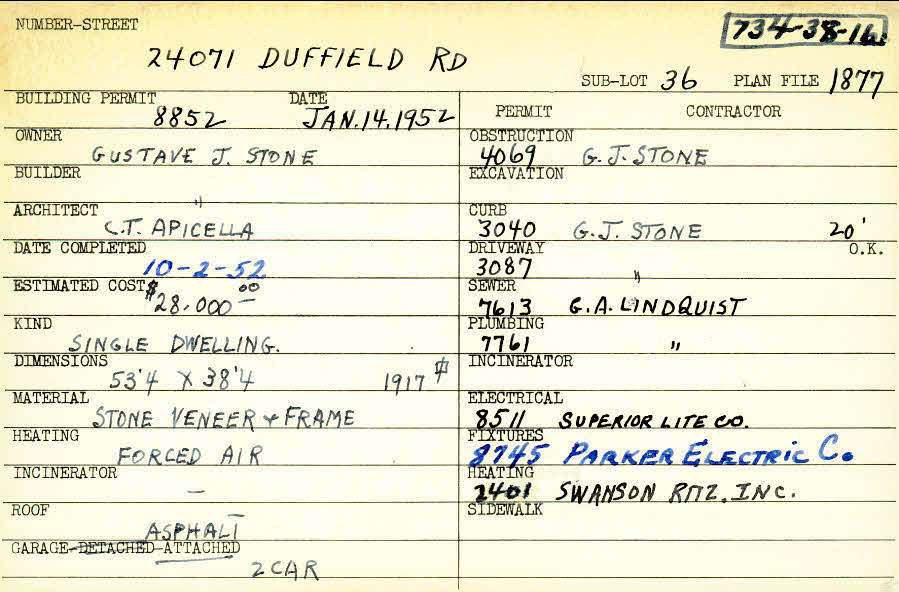 NUMBER-STREET
734-38-16
24071 DUFFIELD RD
SUB-LOT 36 PLAN FILE 1877
BUILDING PERMIT DATE
8852 JAN. 14, 1952
PERMIT CONTRACTOR
OWNER
GUSTAVE J. STONE
OBSTRUCTION
4069 G. J. STONE
BUILDER
"
EXCAVATION
ARCHITECT
C.T. APICELLA
CURB
3040 G. J. STONE 20'
DATE COMPLETED
10-2-52
DRIVEWAY O.K.
3087 "
ESTIMATED COST $
28,000 00
SEWER
7613 G.A. LINDQUIST
KIND
SINGLE DWELLING.
PLUMBING
7761 "
DIMENSIONS
53'4 X 38'4 1917
INCINERATOR
MATERIAL
STONE VENEER & FRAME
ELECTRICAL
8511 SUPERIOR LITE CO.
HEATING
FORCED AIR
FIXTURES
8745 PARKER ELECTRIC Co
INCINERATOR
—
HEATING
2401 SWANSON RITZ, INC.
ROOF
ASPHALT
SIDEWALK
GARAGE-DETACHED-ATTACHED
2 CAR